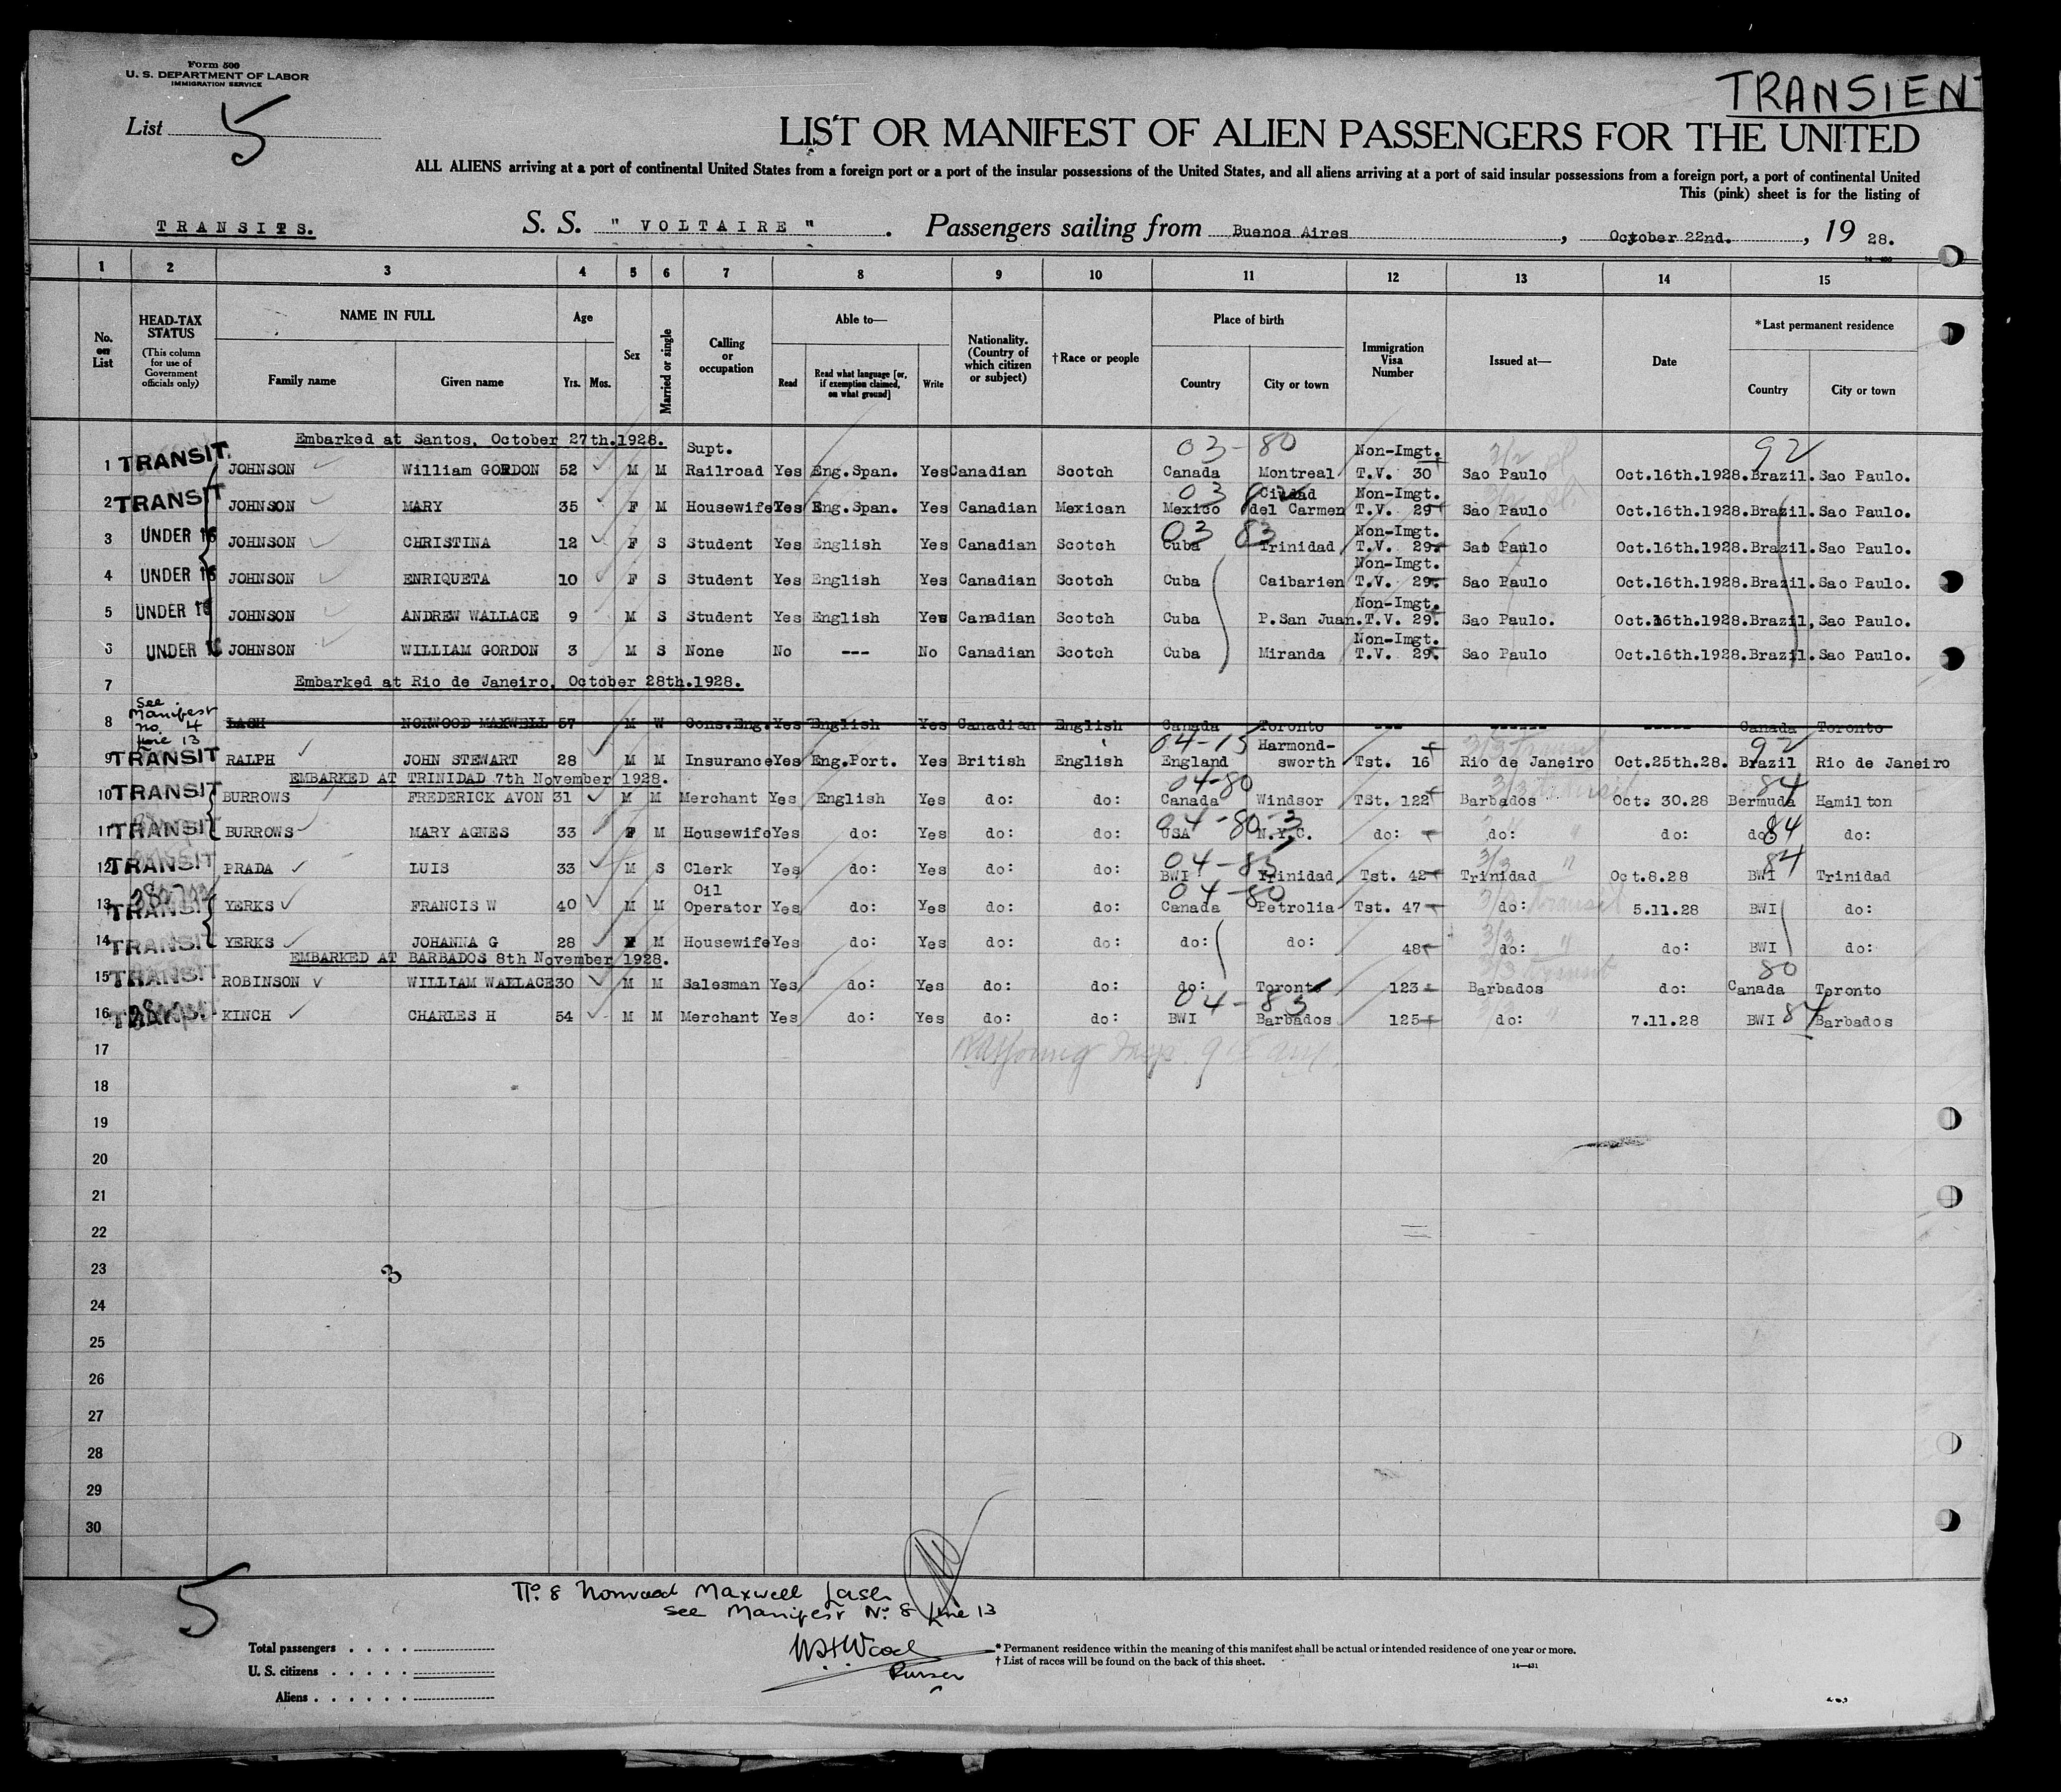 Form 500
U. S. DEPARTMENT OF LABOR
IMMIGRATION SERVICE
TRANSIENT
List 5
LIST OR MANIFEST OF ALIEN PASSENGERS FOR THE UNITED
ALL ALIENS arriving at a port of continental United States from a foreign port or a port of the insular possessions of the United States, and all aliens arriving at a port of said insular possessions from a foreign port, a port of continental United
This (pink) sheet is for the listing of
TRANSITS. S. S. " VOLTAIRE ". Passengers sailing from Buenos Aires, October 22nd., 19 28.
1 2 3 4 5 6 7 8 9 10 11 12 13 14 15
No. on List HEAD-TAX STATUS (This column for use of Government officials only) NAME IN FULL Family name Given name Age Yrs. Mos. Sex Married or single Calling or occupation Able to— Read Read what language [or, if exemption claimed, on what ground] Write Nationality. (Country of which citizen or subject) †Race or people Place of birth Country City or town Immigration Visa Number Issued at— Date *Last permanent residence Country City or town
Embarked at Santos, October 27th.1928.
03-80 92
1 TRANSIT JOHNSON William GORDON 52 M M Supt. Railroad Yes Eng.Span. Yes Canadian Scotch Canada Montreal Non-Imgt. T.V. 30 Sao Paulo Oct.16th.1928. Brazil. Sao Paulo.
2 TRANSIT JOHNSON MARY 35 F M Housewife Yes Eng.Span. Yes Canadian Mexican 03 Mexico Ciudad del Carmen Non-Imgt. T.V. 29 Sao Paulo Oct.16th.1928. Brazil. Sao Paulo.
3 UNDER 16 JOHNSON CHRISTINA 12 F S Student Yes English Yes Canadian Scotch 03 83 Cuba Trinidad Non-Imgt. T.V. 29. Sao Paulo Oct.16th.1928. Brazil. Sao Paulo.
4 UNDER 16 JOHNSON ENRIQUETA 10 F S Student Yes English Yes Canadian Scotch Cuba Caibarien Non-Imgt. T.V. 29. Sao Paulo Oct.16th.1928. Brazil. Sao Paulo.
5 UNDER 16 JOHNSON ANDREW WALLACE 9 M S Student Yes English Yes Canadian Scotch Cuba P.San Juan. Non-Imgt. T.V. 29. Sao Paulo. Oct.16th.1928. Brazil, Sao Paulo.
6 UNDER 16 JOHNSON WILLIAM GORDON 3 M S None No --- No Canadian Scotch Cuba Miranda Non-Imgt. T.V. 29. Sao Paulo Oct.16th.1928. Brazil. Sao Paulo.
7 Embarked at Rio de Janeiro, October 28th.1928.
8 See Manifest no. 4 line 13 LASH NORWOOD MAXWELL 57 M W Cons.Eng. Yes English Yes Canadian English Canada Toronto --- ------ ----- Canada Toronto
9 TRANSIT RALPH JOHN STEWART 28 M M Insurance Yes Eng.Port. Yes British English 04-15 England Harmond-sworth Tst. 16 Rio de Janeiro Oct.25th.28. 92 Brazil Rio de Janeiro
EMBARKED AT TRINIDAD 7th November 1928.
10 TRANSIT BURROWS FREDERICK AVON 31 M M Merchant Yes English Yes do: do: 04-80 Canada Windsor TSt. 122 Barbados Oct. 30.28 84 Bermuda Hamilton
11 TRANSIT BURROWS MARY AGNES 33 F M Housewife Yes do: Yes do: do: 04-80-3 USA N.Y.C. do: do: do: do: 84 do:
12 TRANSIT PRADA LUIS 33 M S Clerk Yes do: Yes do: do: 04-83 BWI Trinidad Tst. 42 Trinidad Oct.8.28 84 BWI Trinidad
13 TRANSIT YERKS FRANCIS W 40 M M Oil Operator Yes do: Yes do: do: 04-80 Canada Petrolia Tst. 47 do: 5.11.28 BWI do:
14 TRANSIT YERKS JOHANNA G 28 F M Housewife Yes do: Yes do: do: do: do: 48 do: do: BWI do:
EMBARKED AT BARBADOS 8th November 1928.
15 TRANSIT ROBINSON WILLIAM WALLACE 30 M M Salesman Yes do: Yes do: do: do: Toronto 123 Barbados do: 80 Canada Toronto
16 TRANSIT KINCH CHARLES H 54 M M Merchant Yes do: Yes do: do: 04-83 BWI Barbados 125 do: 7.11.28 BWI 84 Barbados
17
18
19
20
21
22
23
3
24
25
26
27
28
29
30
5
No. 8 Norwood Maxwell Lash
see Manifest No. 8 line 13
Total passengers
U. S. citizens
Aliens
W.H.Wood
Purser
* Permanent residence within the meaning of this manifest shall be actual or intended residence of one year or more.
† List of races will be found on the back of this sheet.
14—431